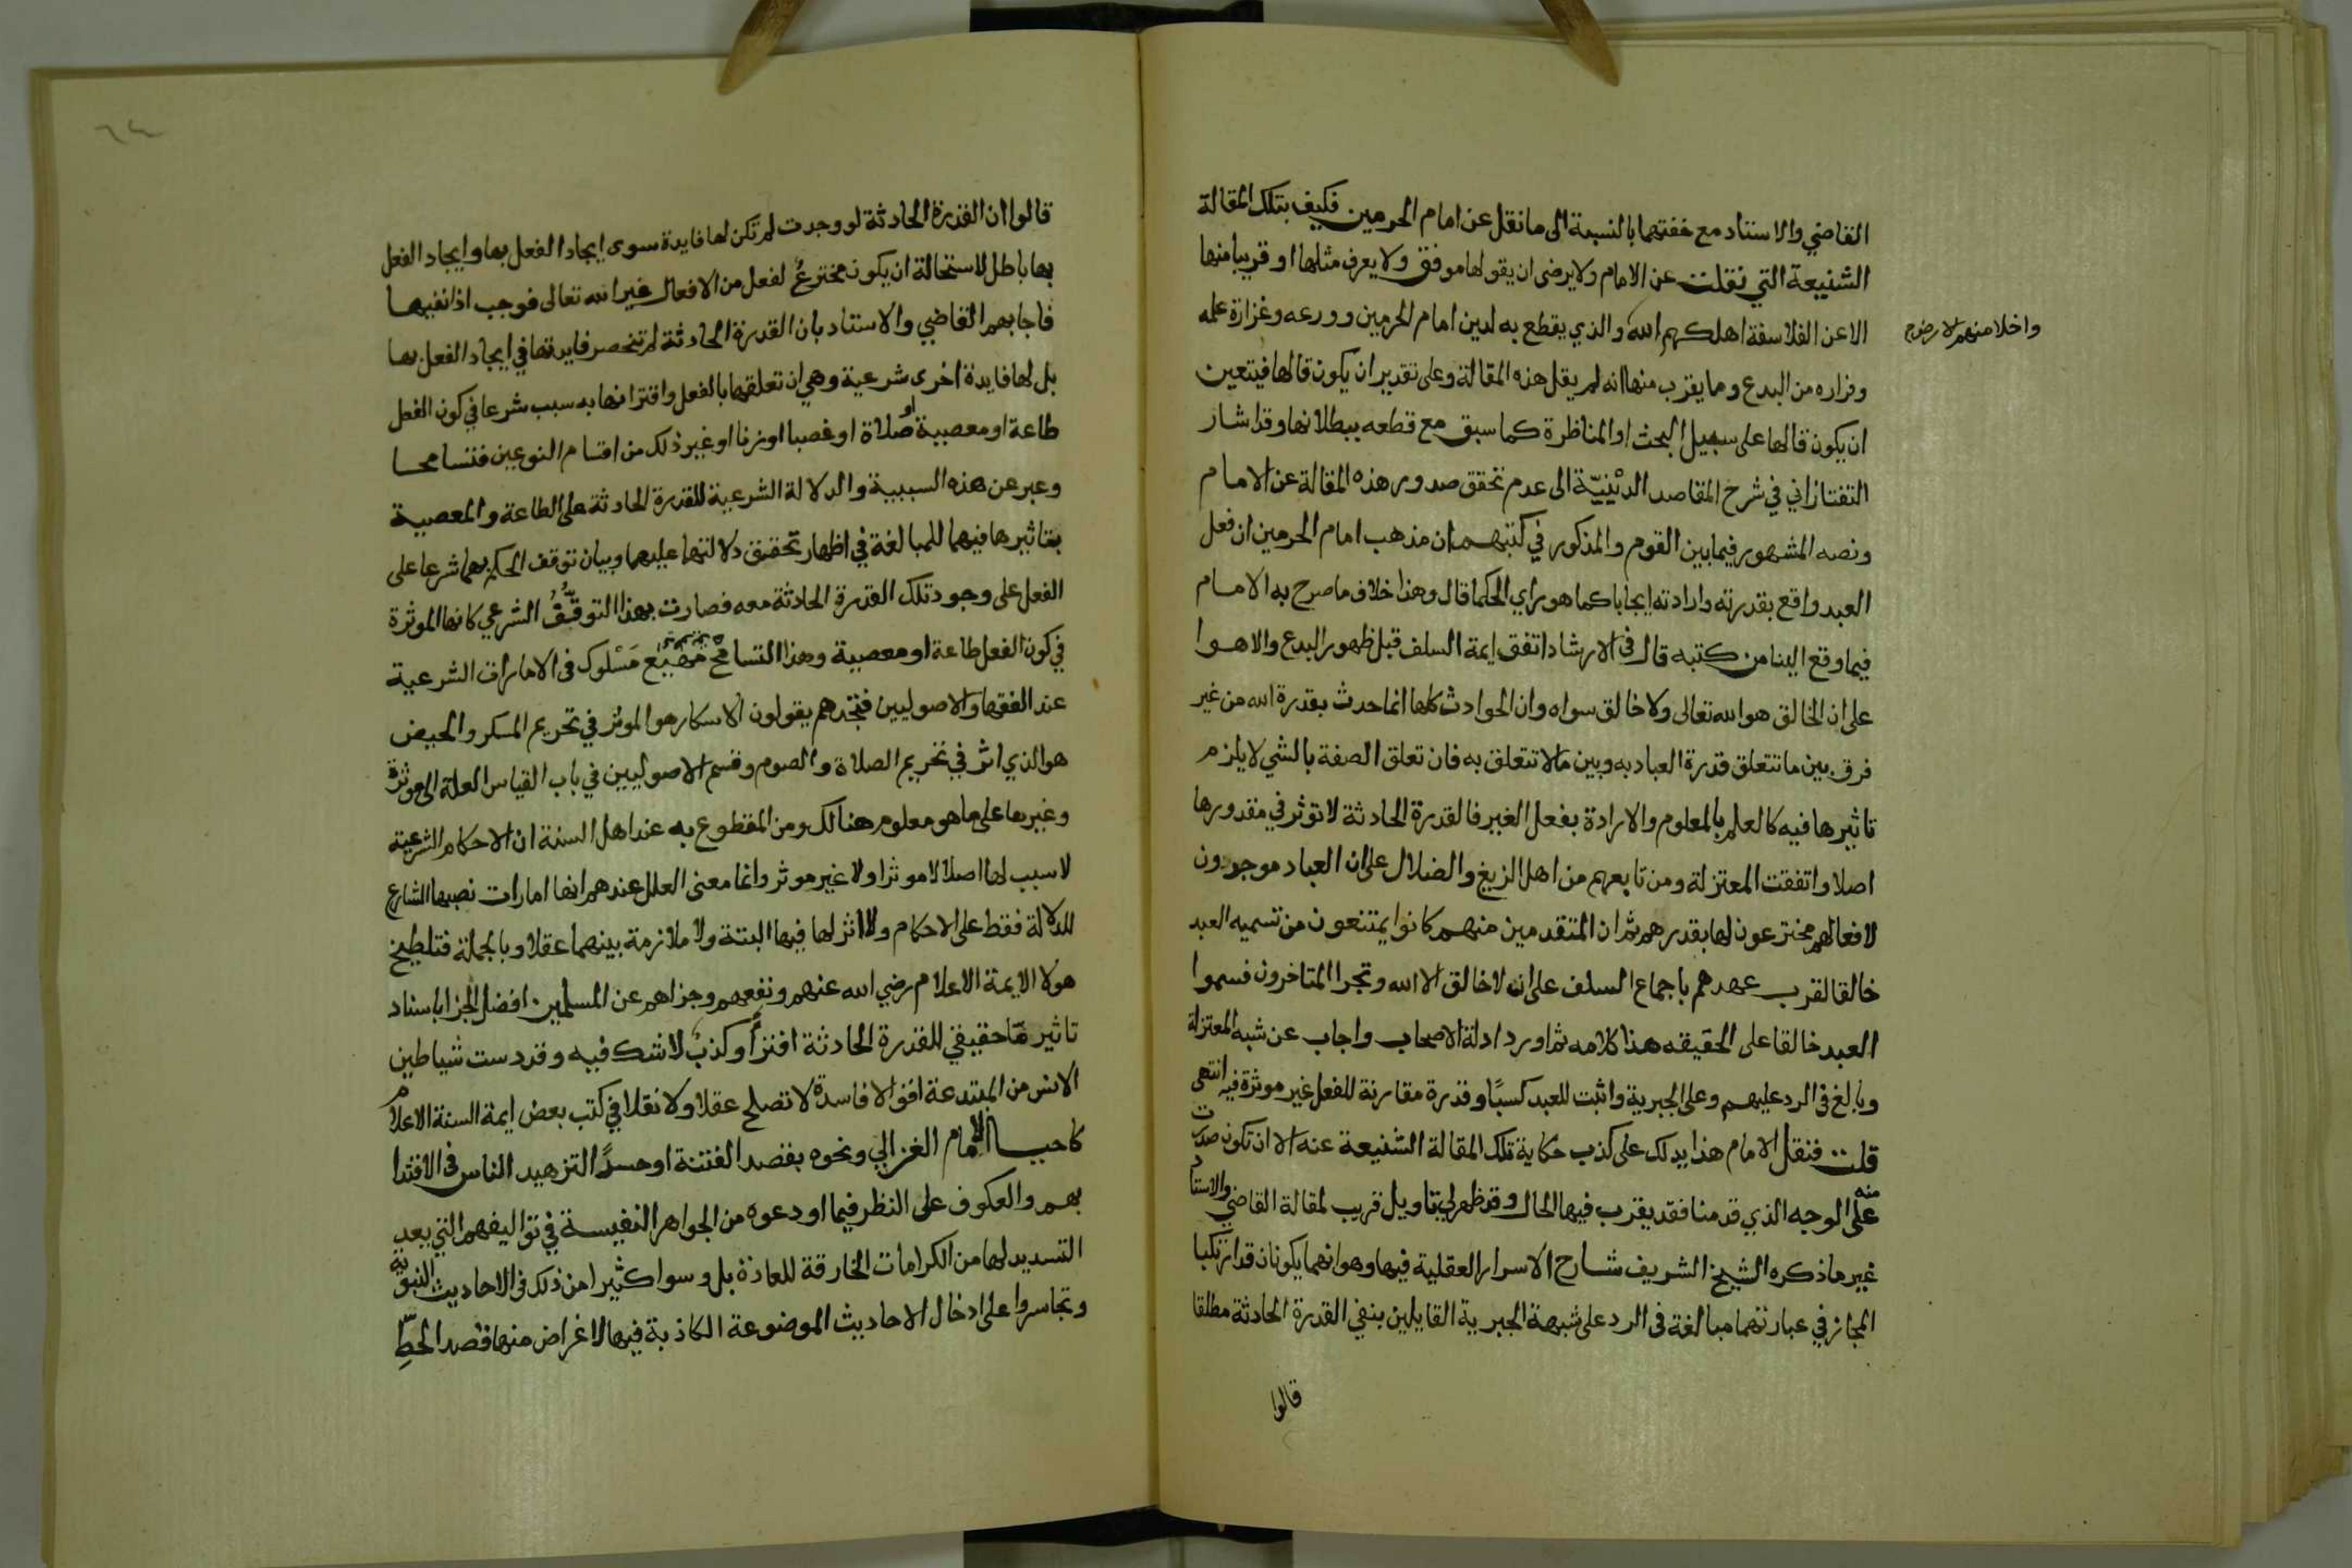 القاضي والاستاد مع خفتهما بالنسبة الى ما نقل عن امام الحرمين فكيف بتلك المقالة
الشنيعة التي نقلت عن الامام ولا يرضى ان يقولها موفق ولا يعرف مثلها او قريبا منها
الا عن الفلاسفة اهلكهم الله والذي يقطع به لدين امام الحرمين وورعه وغزارة علمه
واخلا منهم الارض
وفراره من البدع وما يقرب منها انه لم يقل هذه المقالة وعلى تقدير ان يكون قالها فيتعين
ان يكون قالها على سبيل البحث او المناظرة كما سبق مع قطعه ببطلانها وقد اشار
التفتازاني في شرح المقاصد الدينيّة الى عدم تحقق صدور هذه المقالة عن الامام
ونصه المشهور فيما بين القوم والمذكور في كتبهم ان مذهب امام الحرمين ان فعل
العبد واقع بقدرته وارادته ايجابا كما هو راي الحكما قال وهذا خلاف ما صرح به الامام
فيما وقع الينا من كتبه قال في الارشاد اتفق ايمة السلف قبل ظهور البدع والاهوا
على ان الخالق هو الله تعالى ولا خالق سواه وان الحوادث كلها انما حدث بقدرة الله من غير
فرق بين ما تتعلق قدرة العباد به وبين ما لا تتعلق به فان تعلق الصفة بالشي لا يلزم
تاثيرها فيه كالعلم بالمعلوم والارادة بفعل الغير فالقدرة الحادثة لا توثر في مقدورها
اصلا واتفقت المعتزلة ومن تابعهم من اهل الزيغ والضلال على ان العباد موجدون
لافعالهم مخترعون لها بقدرهم ثم ان المتقدمين منهم كانوا يمتنعون من تسميه العبد
خالقا لقرب عهدهم باجماع السلف على ان لا خالق الا الله وتجرا المتاخرون فسموا
العبد خالقا على الحقيقه هذا كلامه ثم اورد ادلة الاصحاب واجاب عن شبه المعتزلة
وبالغ في الرد عليهم وعلى الجبرية واثبت للعبد كسبًا وقدرة مقارنة للفعل غير موثرة فيه انتهى
قلت فنقل الامام هذا يدلك على كذب حكاية تلك المقالة الشنيعة عنه الا ان تكون صدرت
منه على الوجه الذي قدمنا فقد يقرب فيها الحال وقد ظهر لي تاويل قريب لمقالة القاضي والاستاد
غير ما ذكره الشيخ الشريف شارح الاسرار العقلية فيها وهو انهما يكونان قد ارتكبا
المجاز في عبارتهما مبالغة في الرد على شبهة الجبرية القايلين بنفي القدرة الحادثة مطلقا
قالوا
قالوا ان القدرة الحادثة لو وجدت لم تكن لها فايدة سوى ايجاد الفعل بها وايجاد الفعل
بها باطل لاستحالة ان يكون مخترعٌ لفعل من الافعال غير الله تعالى فوجب اذا نفيها
فاجابهم القاضي والاستاد بان القدرة الحادثة لم تنحصر فايدتها في ايجاد الفعل بها
بل لها فايدة اخرى شرعية وهي ان تعلقها بالفعل واقترانها به سبب شرعا في كون الفعل
طاعة او معصية او صلاة او غصبا او زنا او غير ذلك من اقسام النوعين فتسامحا
وعبر عن هذه السببية والدلالة الشرعية للقدرة الحادثة على الطاعة والمعصية
بتاثيرها فيهما للمبالغة في اظهار تحقيق دلالتها عليهما وبيان توقف الحكم بهما شرعا على
الفعل على وجود تلك القدرة الحادثة معه فصارت بهذا التوقُّفُ الشرعي كانها الموثرة
في كون الفعل طاعة او معصية وهذا التسامح مهْيَع مَسْلوك في الامارات الشرعية
عند الفقها والاصوليين فتجدهم يقولون الاسكار هو الموثر في تحريم المسكر والحيض
هو الذي اثر في تحريم الصلاة والصوم وقسم الاصوليين في باب القياس العلة الى موثرة
وغيرها على ما هو معلوم هنالك ومن المقطوع به عند اهل السنة ان الاحكام الشرعية
لا سبب لها اصلا لا موثرا ولا غير موثر وانما معنى العلل عندهم انها امارات نصبها الشارع
للدلالة فقط على الاحكام ولا اثر لها فيها البتة ولا ملازمة بينهما عقلا وبالجملة فتلطيخ
هولا الايمة الاعلام رضي الله عنهم ونفعهم وجزاهم عن المسلمين افضل الجزا باسناد
تاثير مّا حقيقي للقدرة الحادثة افترأ وكذبٌ لا شك فيه وقد دست شياطين
الانس من المبتدعة اقوالا فاسدة لا تصلح عقلا ولا نقلا في كتب بعض ايمة السنة الاعلام
كاحيا الامام الغزالي ونحوه بقصد الفتنة او حسدًا لتزهيد الناس في الاقتدا
بهم والعكوف على النظر فيما اودعوه من الجواهر النفيسة في تواليفهم التي يعد
التسديد لها من الكرامات الخارقة للعادة بل وسوا كثيرا من ذلك في الاحاديث النبوية
وتجاسروا على ادخال الاحاديث الموضوعة الكاذبة فيها لاغراض منها قصد الحطِّ